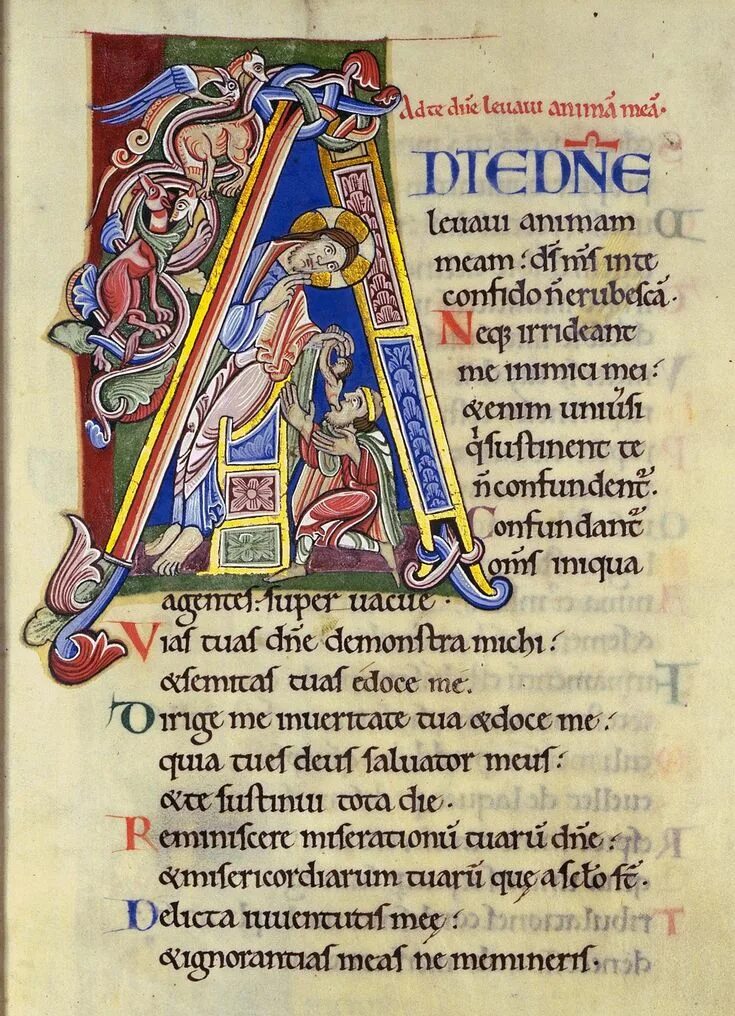 Ad te dñe levavi animã meã.
AD TE DÑE
levavi animam
meam: dſ mſ in te
confido ñ erubeſcã.
Neq; irrideant
me inimici mei:
& enim univ̾ſi
q̾ ſuſtinent te
ñ confundent̾.
Confundant̾
om̃ſ iniqua
agenteſ: ſuper vacue.
Viaſ tuaſ dñe demonſtra michi:
& ſemitaſ tuaſ edoce me.
Dirige me in veritate tua & doce me:
quia tu eſ deuſ ſalvator meuſ:
& te ſuſtinui tota die.
Reminiſcere miſerationũ tuarũ dñe:
& miſericordiarum tuarũ quę a ſc̃lo ſt̃.
Delicta iuventutiſ meę:
& ignorantiaſ meaſ ne memineriſ.